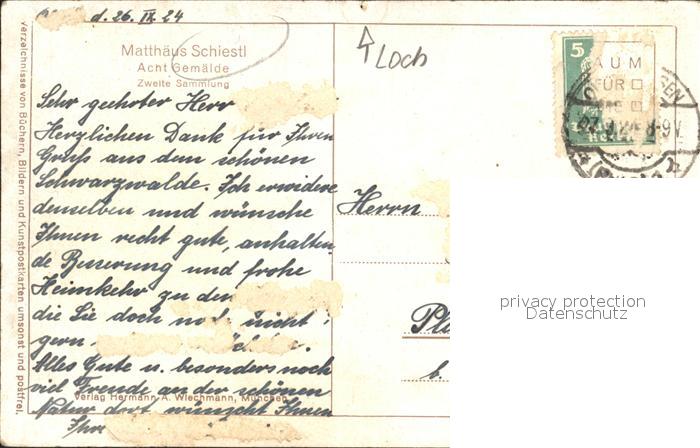 d. 26. IX. 24
Matthäus Schiestl
Acht Gemälde
Zweite Sammlung
Loch
5
AUM
FÜR
Sehr geehrter Herr
Herzlichen Dank für Ihren
Gruß aus dem schönen
Schwarzwalde. Ich erwidere
denselben und wünsche
Ihnen recht gute, anhalten
de Besserung und frohe
Heimkehr zu den
die Sie doch nicht
gern
Alles Gute u. besonders noch
viel Freude an der schönen
Natur dort wünscht Ihnen
Ihre
Verlag Hermann A. Wiechmann, München
Verzeichnisse von Büchern, Bildern und Kunstpostkarten umsonst und postfrei.
Herrn
b.
privacy protection
Datenschutz